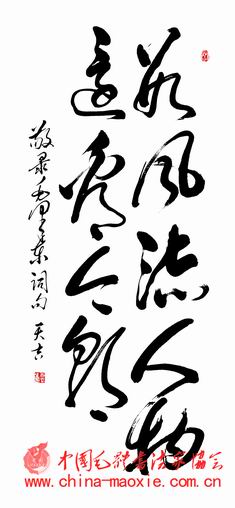 数风流人物
还看今朝
敬录毛泽东词句 天吉
中國毛體书法家協会
www.china-maoxie.com.cn